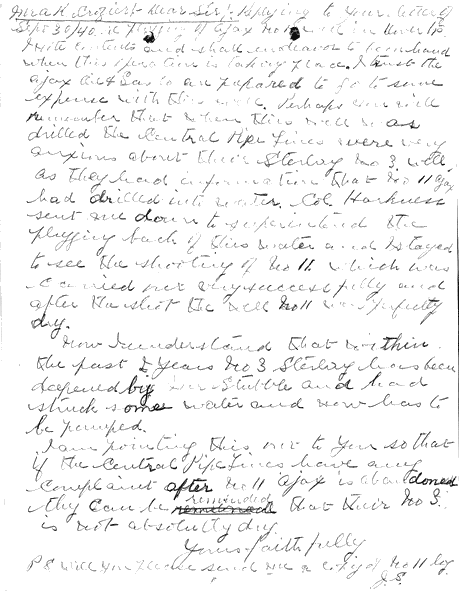 Mr A. R. Crozier:- Dear Sir:- Replying to your letter of
Sept 30/40. re plugging of Ajax No 11 well in
I note contents and shall endeavor to be on hand
when this operation is taking place. I trust the
Ajax Oil & Gas Co are prepared to go to some
expense with this well. Perhaps you will
remember that when this well was
drilled the Central Pipe Lines were very
anxious about their Sterling No 3 well
as they had information that No 11 Ajax
had drilled into water. Col. Harkness
sent me down to superintend the
plugging back of this water and I stayed
to see the shooting of No 11. which was
carried out very successfully and
after the shot the well No 11 was perfectly
dry.
Now I understand that within
the past 2 years No 3 Sterling has been
deepened by and had
struck some water and now has to
be pumped.
I am pointing this out to you so that
if the Central Pipe Lines have any
complaint after No 11 Ajax is abandoned
they can be reminded that their No 3
is not absolutely dry
Yours faithfully
P S will you please send me a copy of No 11 log.
J.S.